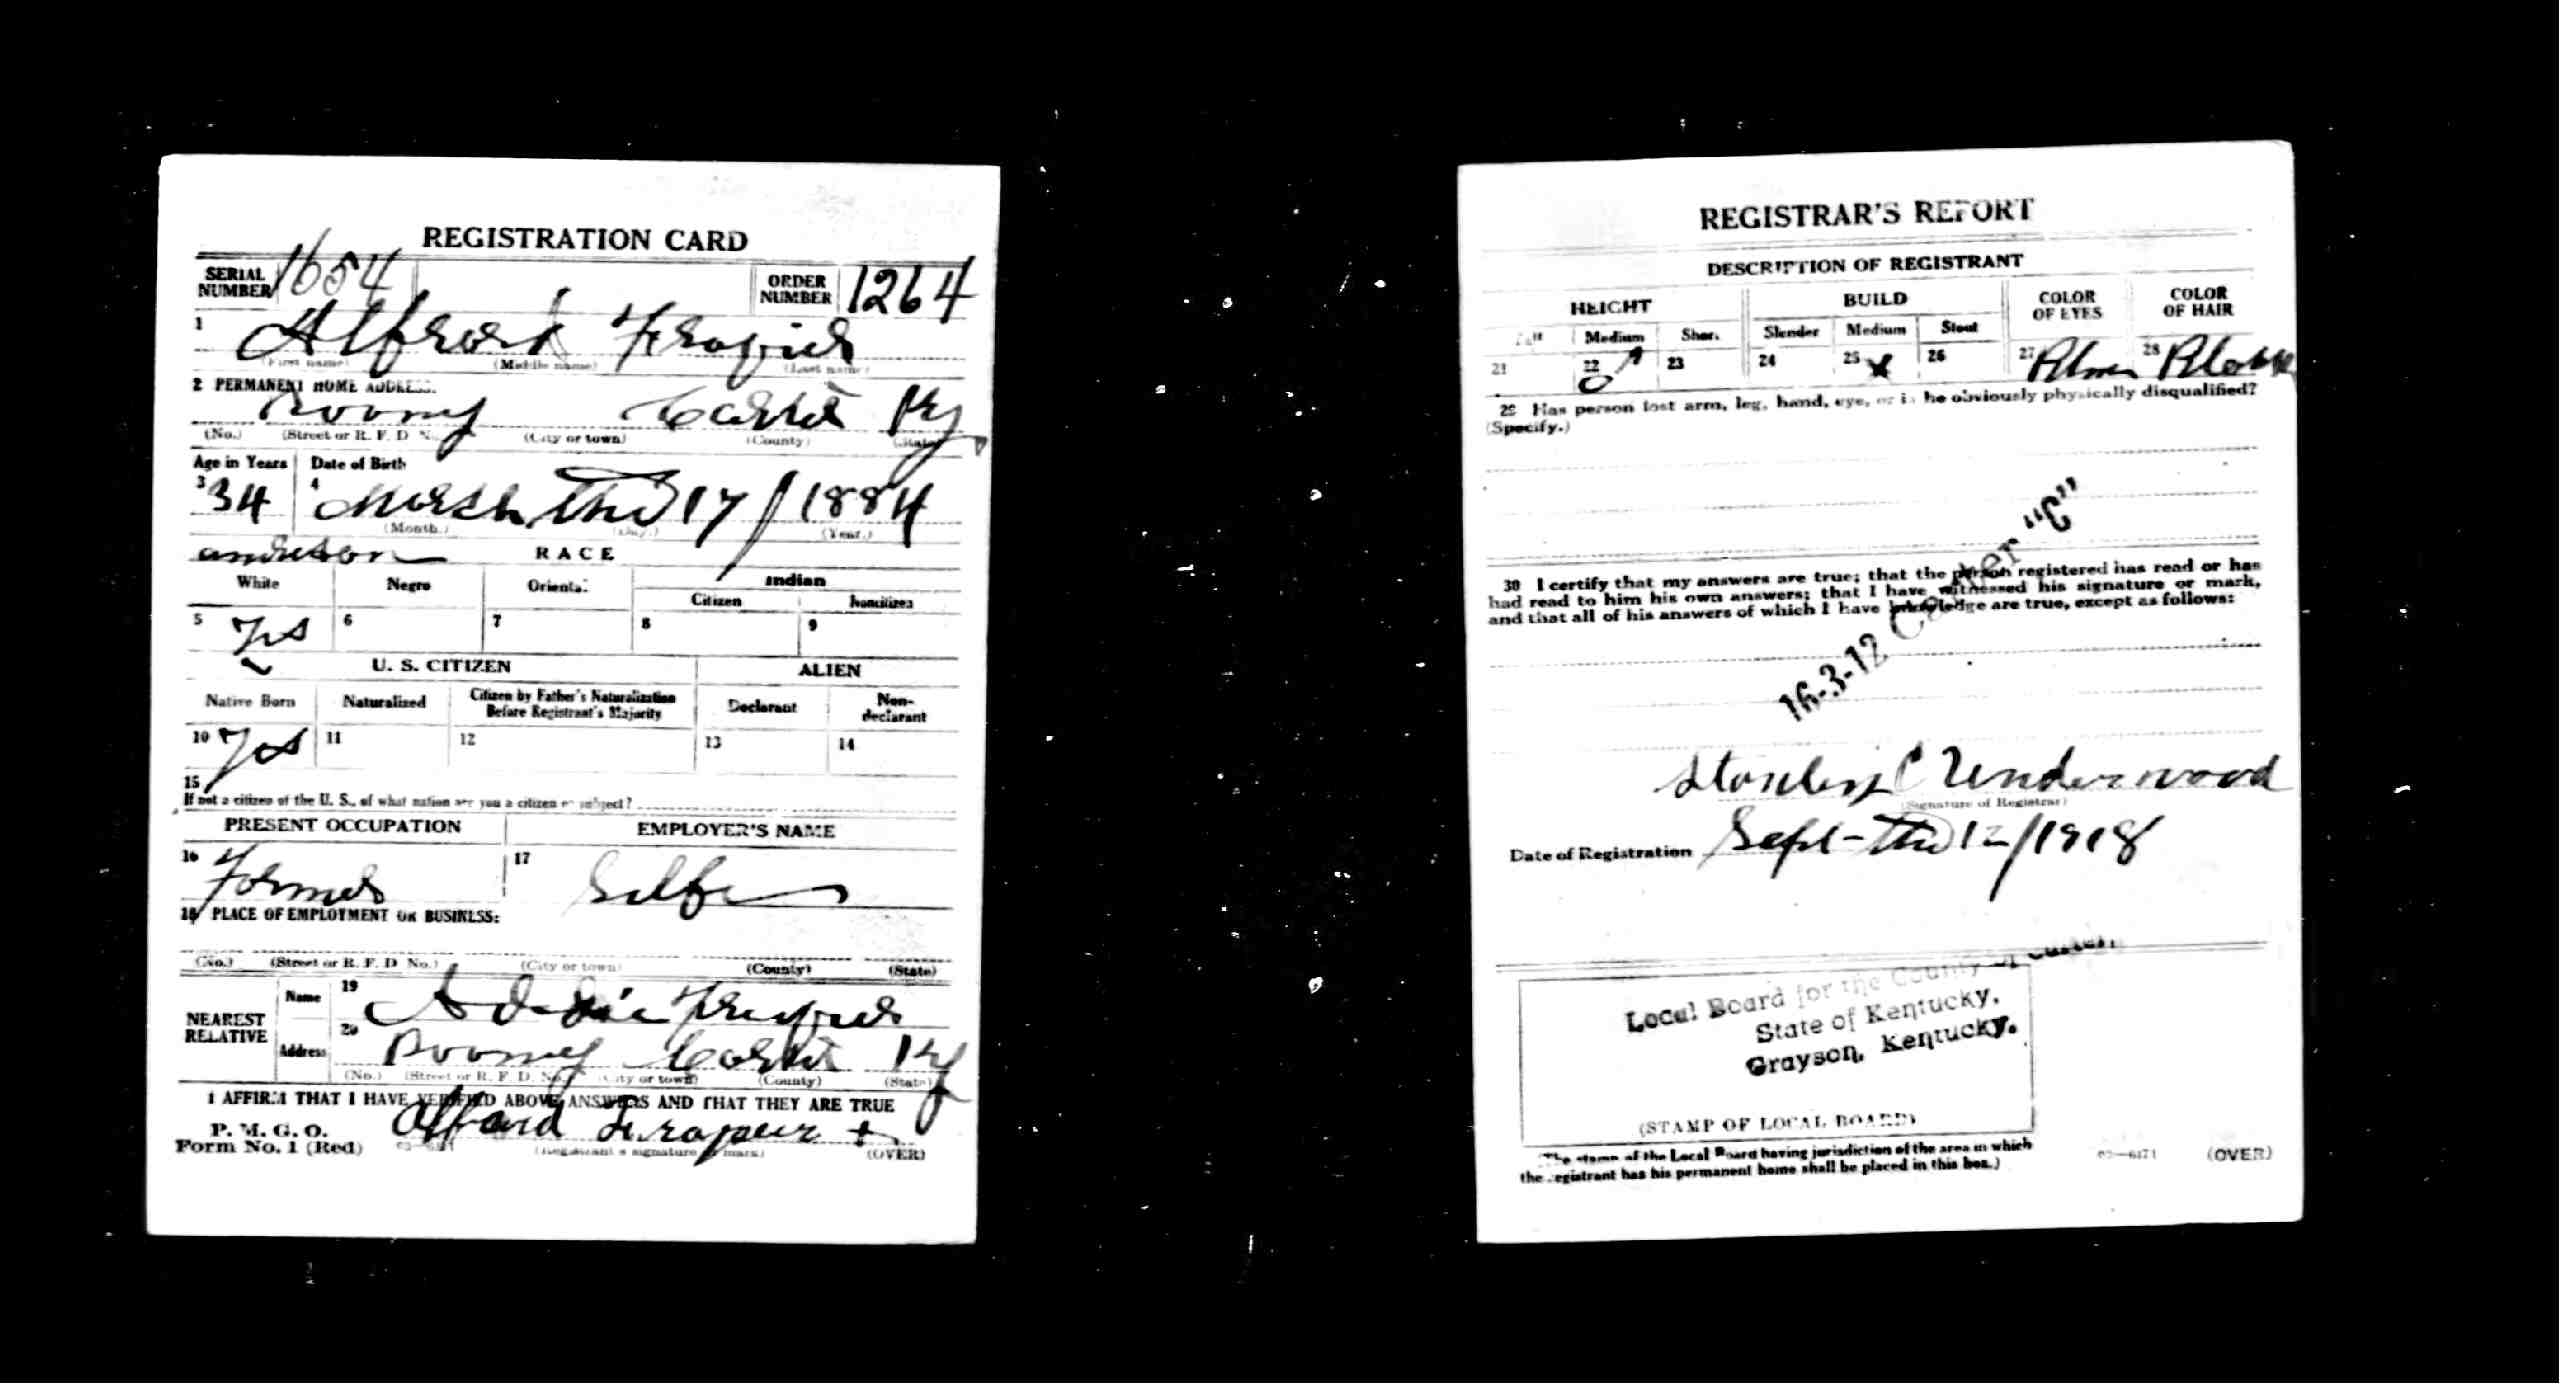 REGISTRATION CARD
SERIAL NUMBER 1654
ORDER NUMBER 1264
1 Alfrord Frazier
(First name) (Middle name) (Last name)
2 PERMANENT HOME ADDRESS:
Roony Carter Ky
(No.) (Street or R. F. D. No.) (City or town) (County) (State)
Age in Years Date of Birth
3 34 4 March the 17 / 1884
(Month.) (Day.) (Year.)
RACE
White Negro Oriental Indian
Citizen Noncitizen
5 Yes 6 7 8 9
U. S. CITIZEN ALIEN
Native Born Naturalized Citizen by Father's Naturalization Before Registrant's Majority Declarant Non-declarant
10 Yes 11 12 13 14
15
If not a citizen of the U. S., of what nation are you a citizen or subject?
PRESENT OCCUPATION EMPLOYER'S NAME
16 Farmer 17 Self
18 PLACE OF EMPLOYMENT OR BUSINESS:
(No.) (Street or R. F. D. No.) (City or town) (County) (State)
NEAREST RELATIVE Name 19 Addie Frazier
Address 20 Roony Carter Ky
(No.) (Street or R. F. D. No.) (City or town) (County) (State)
I AFFIRM THAT I HAVE VERIFIED ABOVE ANSWERS AND THAT THEY ARE TRUE
P. M. G. O.
Form No. 1 (Red) Alfard Frazier +
(Registrant's signature or mark) (OVER)
REGISTRAR'S REPORT
DESCRIPTION OF REGISTRANT
HEIGHT BUILD COLOR OF EYES COLOR OF HAIR
Tall Medium Short Slender Medium Stout
21 22 23 24 25 x 26 27 Blue 28 Black
29 Has person lost arm, leg, hand, eye, or is he obviously physically disqualified?
(Specify.)
30 I certify that my answers are true; that the person registered has read or has
had read to him his own answers; that I have witnessed his signature or mark,
and that all of his answers of which I have knowledge are true, except as follows:
16-3-12 Carter "C"
Stanley C Underwood
(Signature of Registrar)
Date of Registration Sept - the 12 / 1918
Local Board for the County of Carter
State of Kentucky.
Grayson, Kentucky.
(STAMP OF LOCAL BOARD)
(The stamp of the Local Board having jurisdiction of the area in which
the registrant has his permanent home shall be placed in this box.)
03—6171 (OVER)